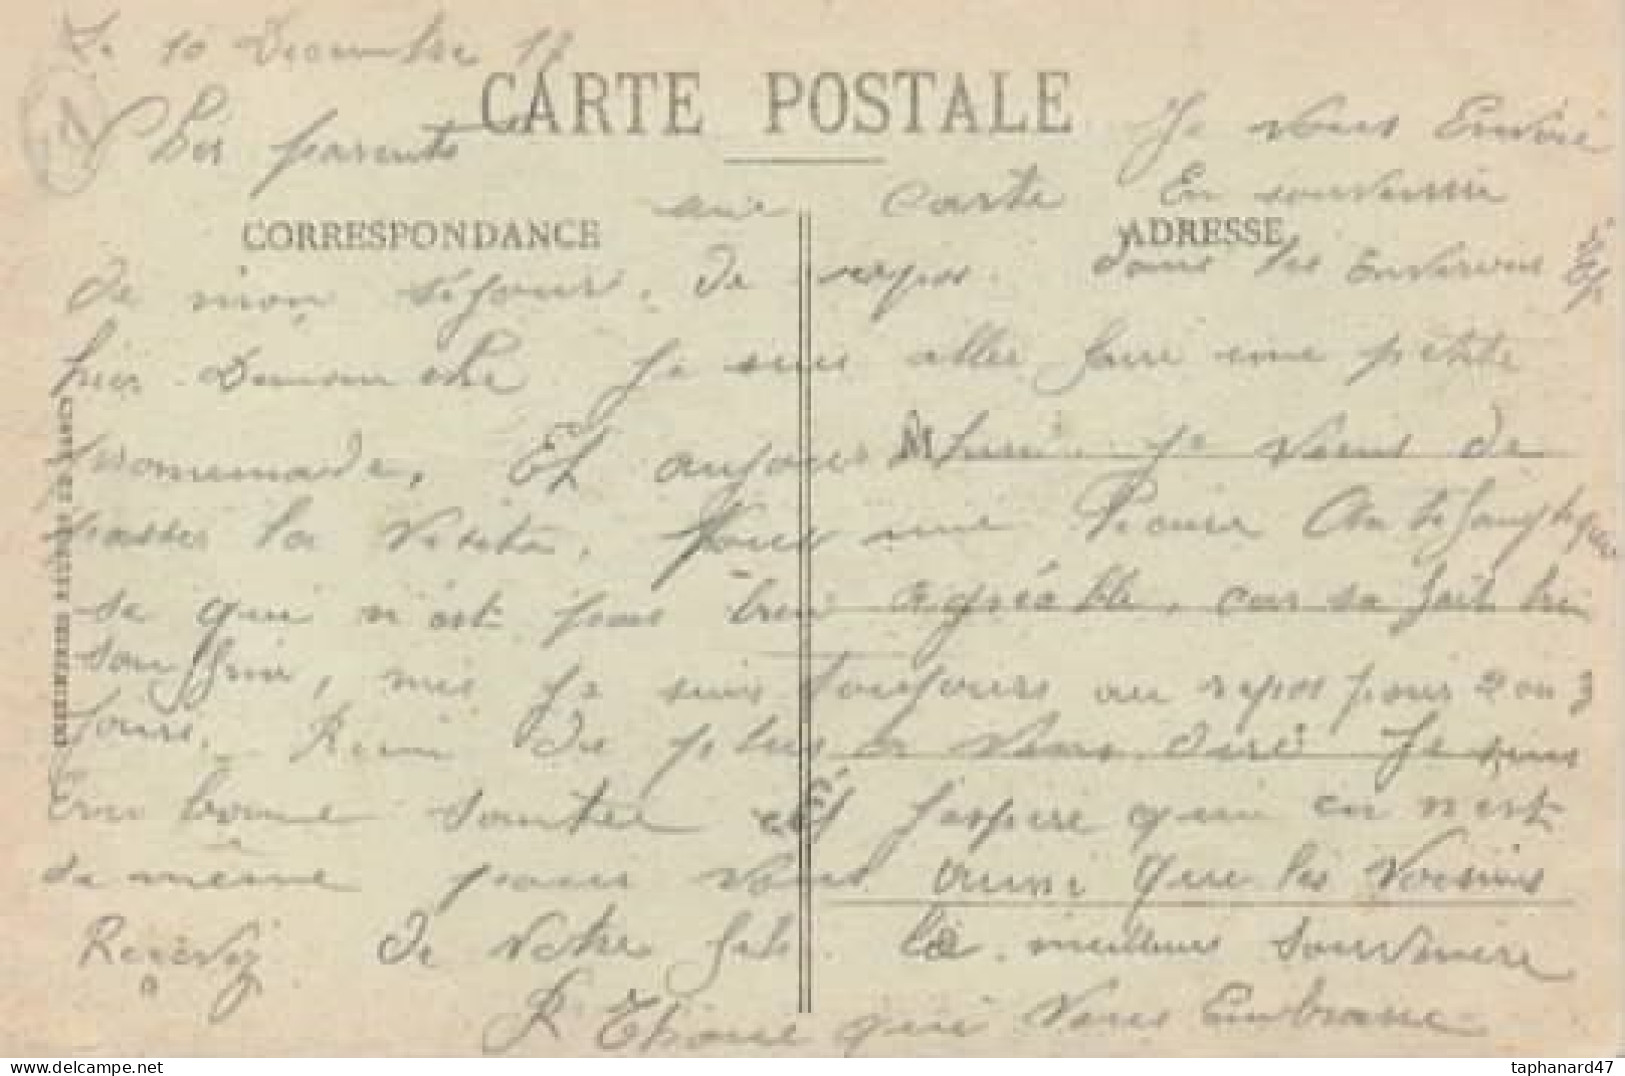 Le 10 Decembre 17
CARTE POSTALE
Cher parents
Je vous Envoie
une carte En souvennir
CORRESPONDANCE
ADRESSE
de mon séjour, de repos. dans les environs Et
hier Dimanche Je suis aller faire une petite
promenade, Et aujourdhui Je viens de
passer la visite, pour une Piqure Antithyphique
se qui n'est pas bien agréable, car sa fait bien
souffrir, mis je suis toujours au repos pour 2 ou 3
jours, Rien de plus a vous dire Je suis
En bonne santée et J'espere quil en n'est
de même pour vous aussi que les voisins
Recevez de votre fils. le meilleur souvenire
R Thome qui vous Embrasse
IMPRIMERIES REUNIES DE NANCY
taphanard47